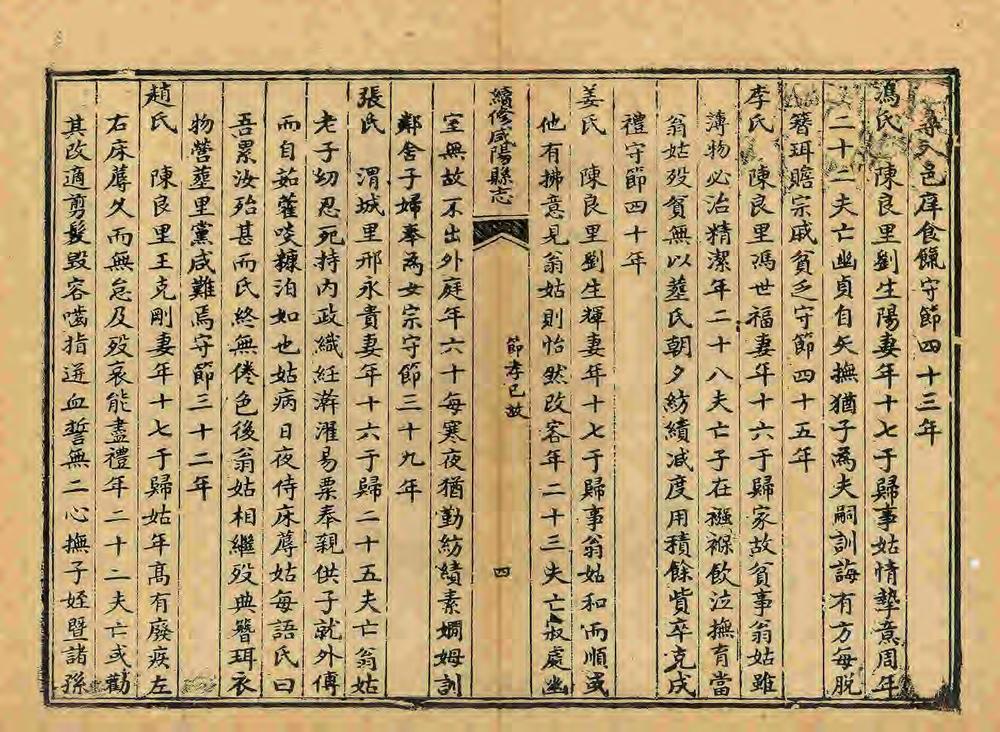 尋入邑庠食餼守節四十三年
馮氏　陳良里劉生陽妻年十七于歸事姑情摯意周年
二十二夫亡幽貞自矢撫猶子為夫嗣訓誨有方每脫
簪珥贍宗戚貧乏守節四十五年
李氏　陳良里馮世福妻年十六于歸家故貧事翁姑雖
薄物必治精潔年二十八夫亡子在襁褓飲泣撫育當
翁姑歿貧無以塟氏朝夕紡績減度用積餘貲卒克成
禮守節四十年
姜氏　陳良里劉生輝妻年十七于歸事翁姑和而順或
他有拂意見翁姑則怡然改容年二十三夫亡寂處幽
續修咸陽縣志
節孝已故
四
室無故不出外庭年六十每寒夜猶勤紡績素嫺姆訓
鄰舍子婦奉為女宗守節三十九年
張氏　渭城里邢永貴妻年十六于歸二十五夫亡翁姑
老子幼忍死持內政織紝澣濯易粟奉親供子就外傅
而自茹藿啖糠泊如也姑病日夜侍床蓐姑每語氏曰
吾累汝殆甚而氏終無倦色後翁姑相繼歿典簪珥衣
物營塟里黨咸難焉守節三十二年
趙氏　陳良里王克剛妻年十七于歸姑年高有廢疾左
右床蓐久而無怠及歿哀能盡禮年二十二夫亡或勸
其改適剪髮毀容嚙指迸血誓無二心撫子姪暨諸孫